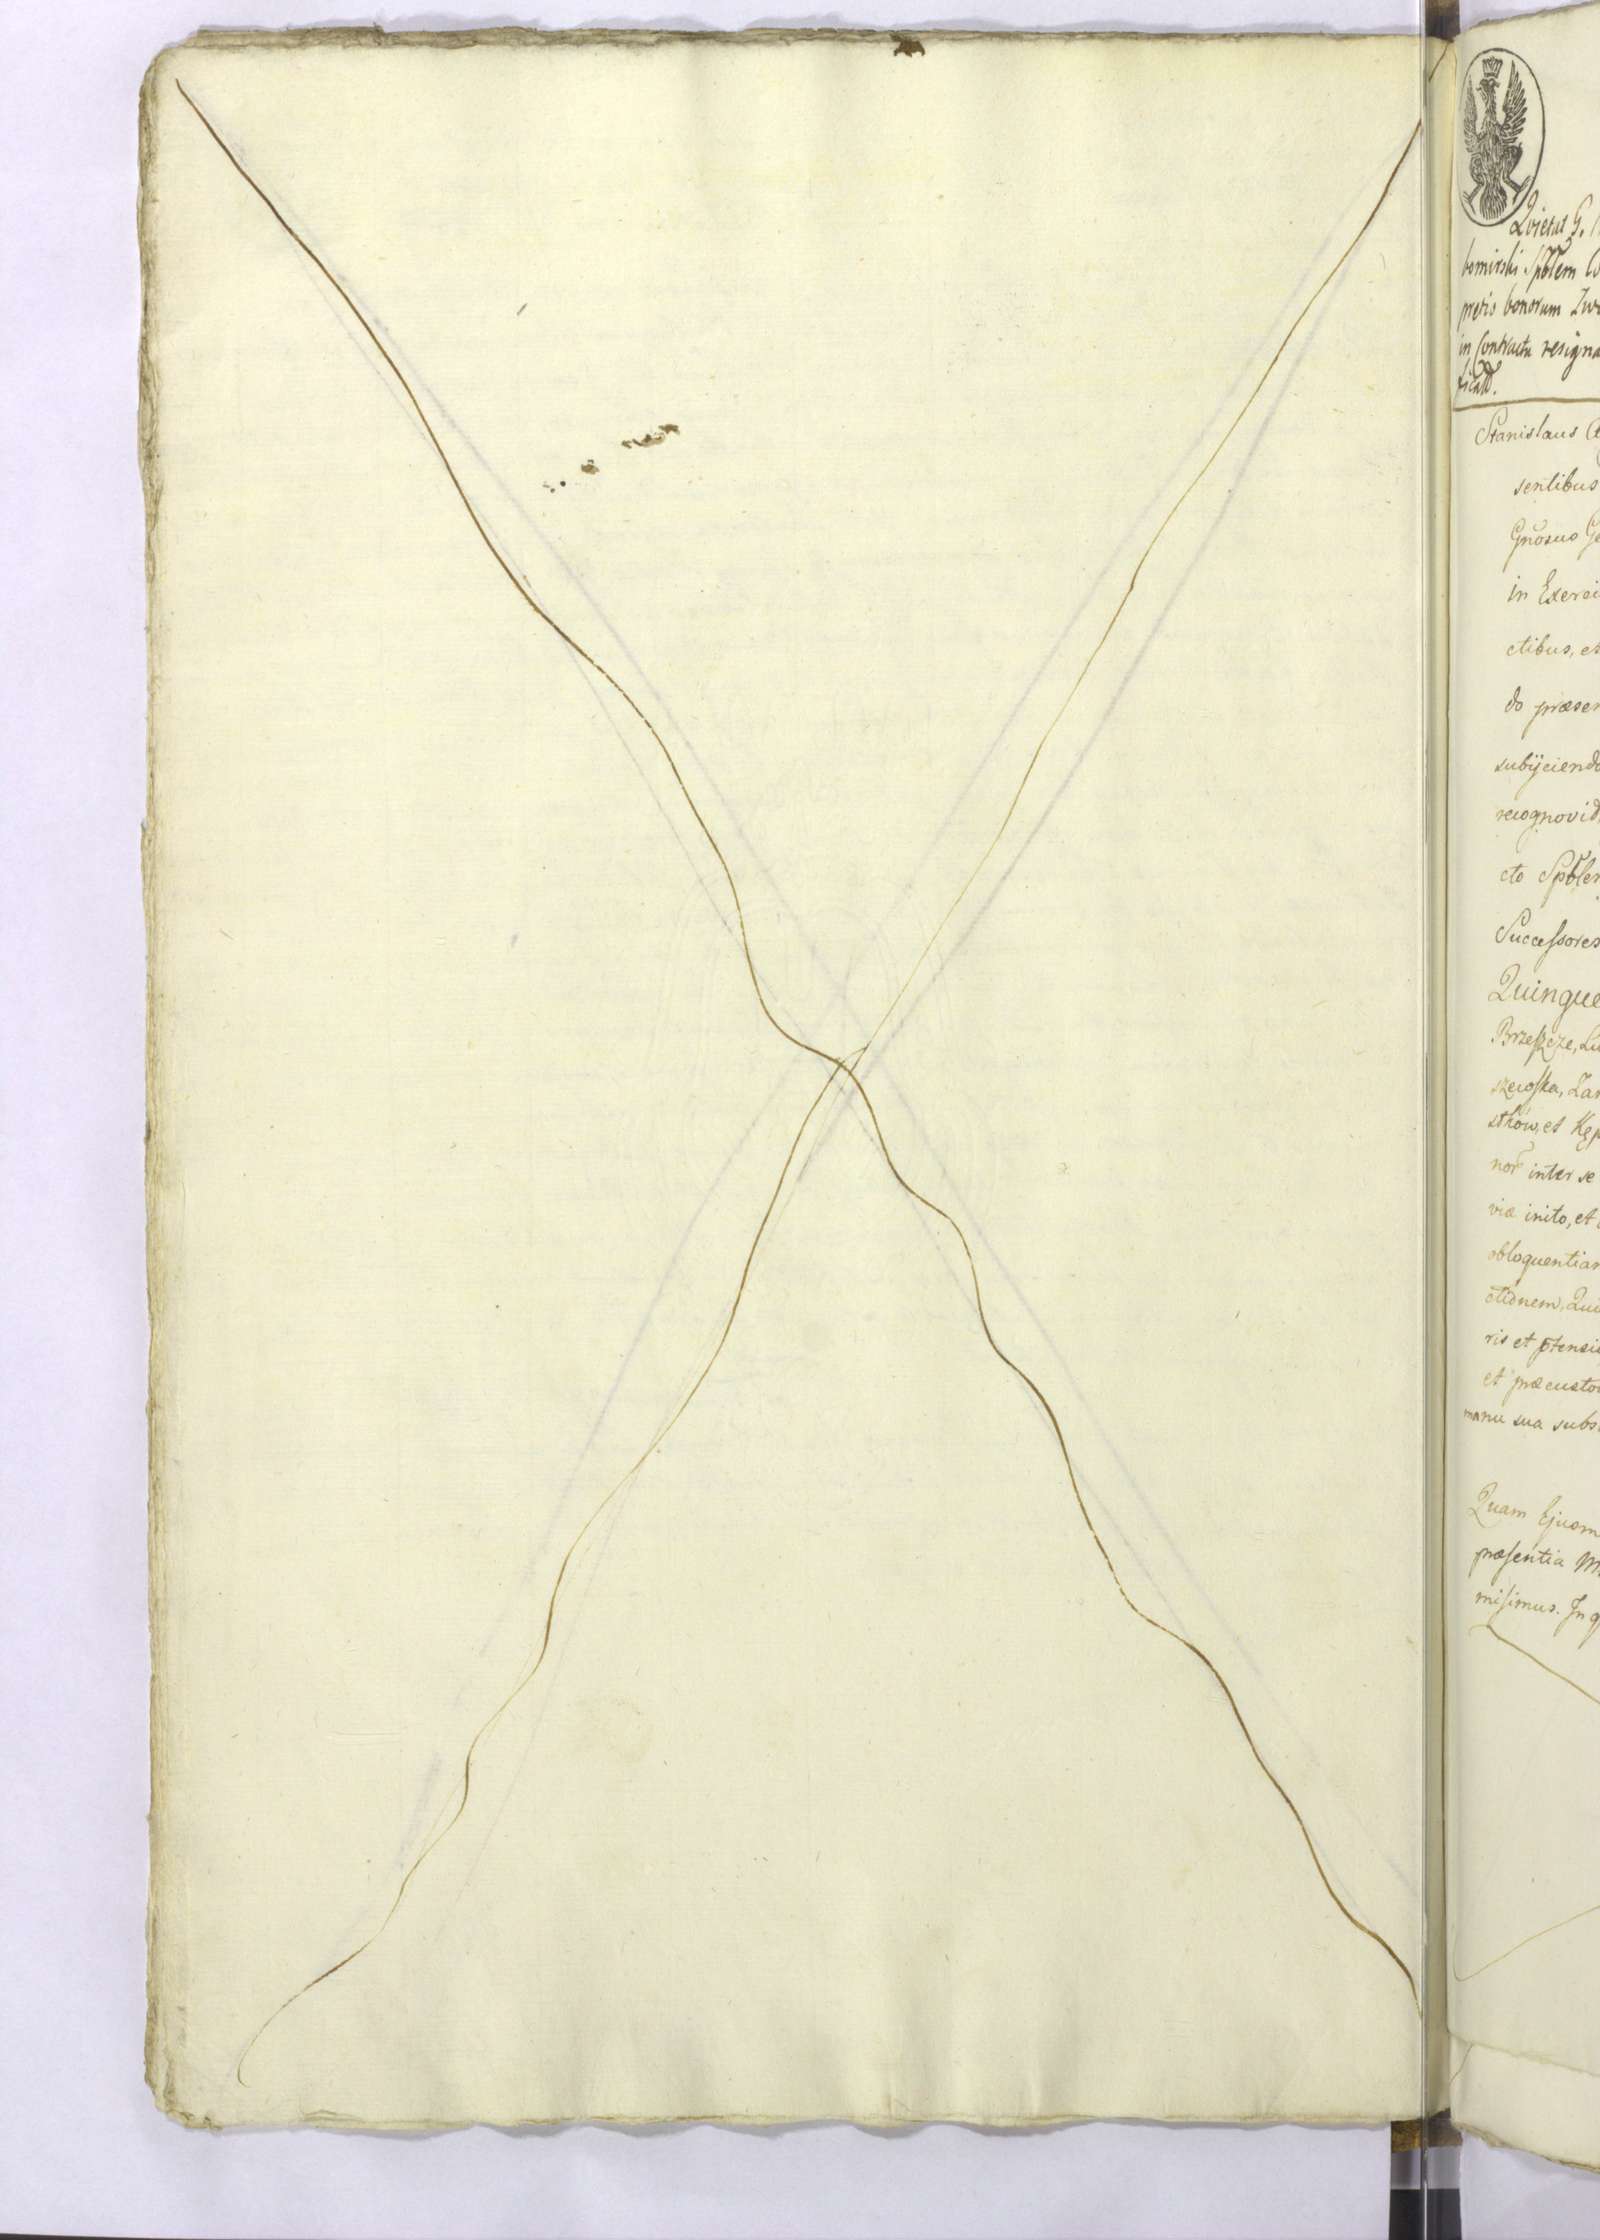 Quietat G.
bomirski Spblem
pretis bonorum
in Contractu resigna
ficatt.
Stanislaus
sentibus
Gnosus
in Exerci
ctibus, et
do præsen
subÿciendo
recognovit
cto Spblem
Successores
Quinque
Brzeszcze, Lu
szewska, Zar
stków, et Kęp
nor inter se
viæ inito, et
obloquentiam
ctionem, Qui
ris et ptensio
et præcusto
manu sua subs
Quam Ejusm
præsentia
misimus. In q